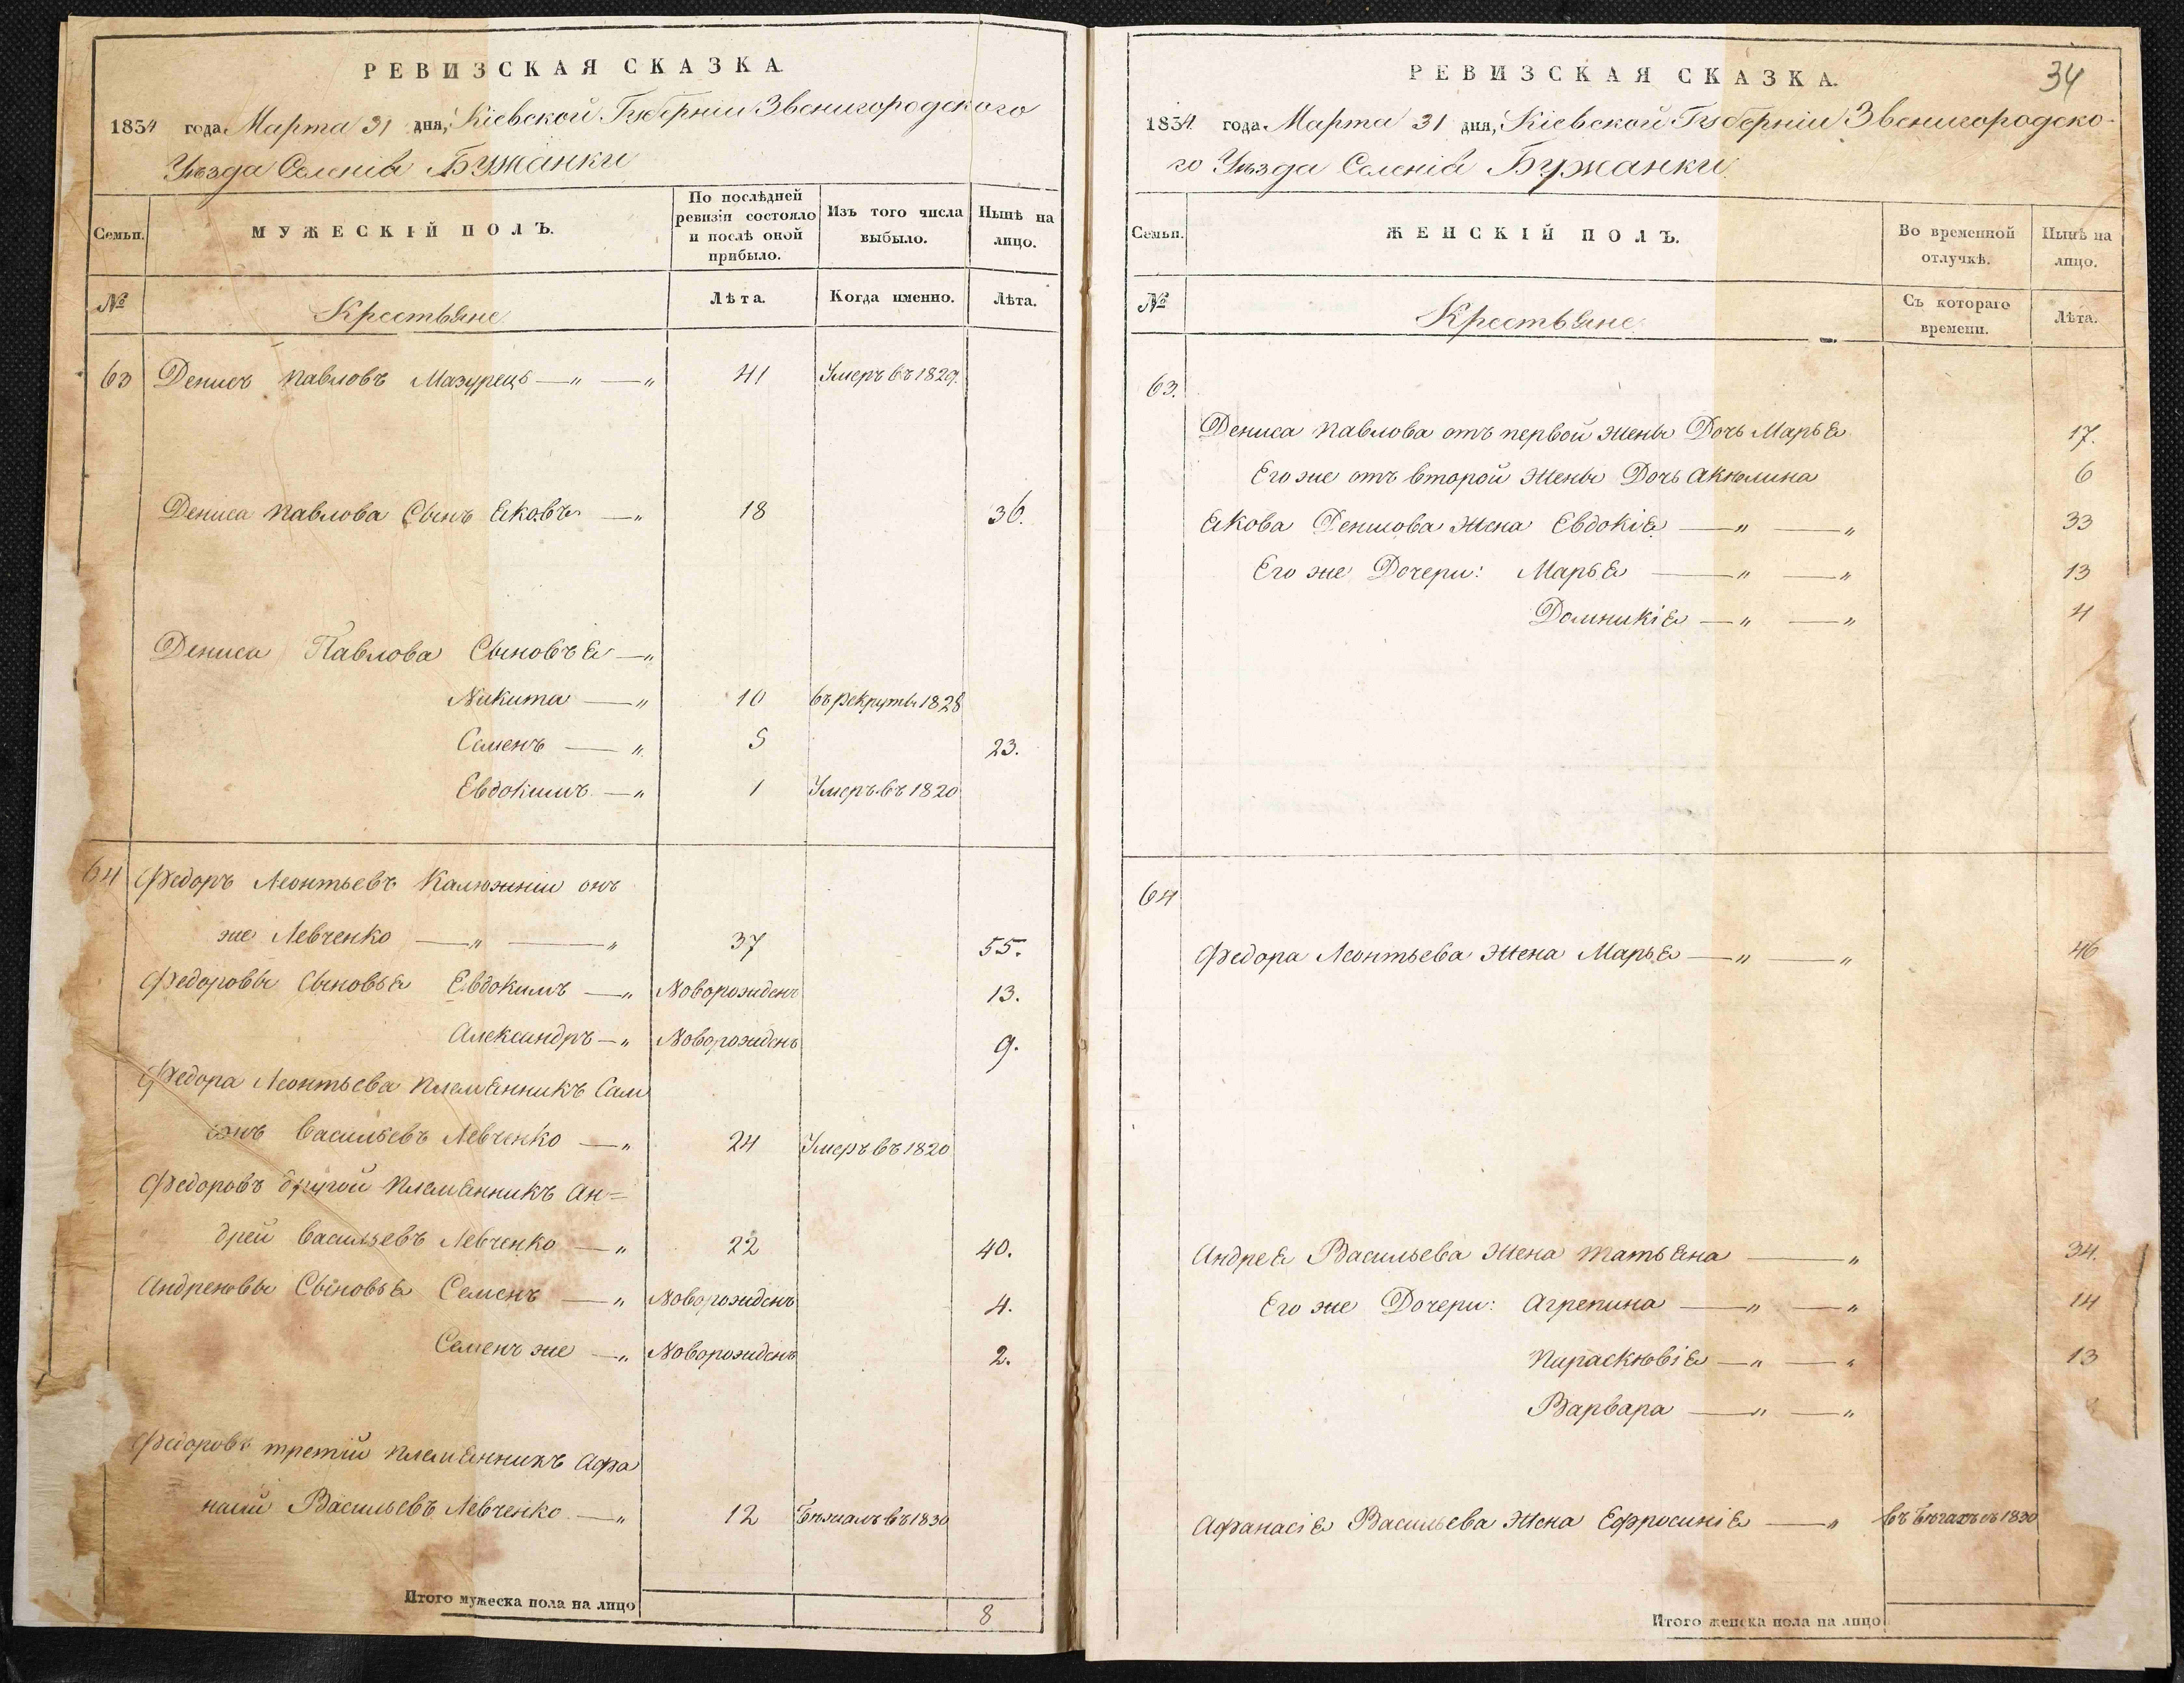 РЕВИЗСКАЯ СКАЗКА
1834 года Марта 31 дня, Кіевской Губерніи Звенигородского
Уѣзда Селенія Бужанки
Семьи.
МУЖЕСКІЙ ПОЛЪ.
По послѣдней
ревизіи состояло
и послѣ оной
прибыло.
Изъ того числа
выбыло.
Нынѣ на
лицо.
№
Крестьяне
Лѣта.
Когда именно.
Лѣта.
63 Денисъ Павловъ Мазурецъ —„ —„ 41 Умеръ въ 1829.
Дениса Павлова Сынъ Яковъ —„ 18 36.
Дениса Павлова Сыновья —„
Никита —„ 10 въ рекруты 1828
Семенъ —„ 5 23.
Евдокимъ —„ 1 Умеръ въ 1820
64 Федоръ Леонтьевъ Калюжній онъ
же Левченко —„ —„ 37 55.
Федоровы Сыновья Евдокимъ —„ Новорожденъ 13.
Александръ —„ Новорожденъ 9.
Федора Леонтьева племянникъ Сам
сонъ Васильевъ Левченко —„ 24 Умеръ въ 1820
Федоровъ другой племянникъ Ан=
дрей Васильевъ Левченко —„ 22 40.
Андреевы Сыновья Семенъ —„ Новорожденъ 4.
Семенъ же —„ Новорожденъ 2.
Федоровъ третій племянникъ Афа
насій Васильевъ Левченко —„ 12 Бѣжалъ въ 1830
Итого мужеска пола на лицо 8
34
РЕВИЗСКАЯ СКАЗКА.
1834 года Марта 31 дня, Кіевской Губерніи Звенигородско-
го Уѣзда Селенія Бужанки
Семьи.
ЖЕНСКІЙ ПОЛЪ.
Во временной
отлучкѣ.
Нынѣ на
лицо.
№
Крестьяне
Съ котораго
времени.
Лѣта.
63.
Дениса Павлова отъ первой жены Дочь Марья 17.
Его же отъ второй жены Дочь Акюлина 6
Якова Денисова жена Евдокія —„ —„ 33
Его же Дочери: Марья —„ —„ 13
Домникія —„ —„ 4
64
Федора Леонтьева жена Марья —„ —„ 46
Андрея Васильева жена Татьяна —„ 34.
Его же Дочери: Агрепина —„ —„ 14
Параскювія —„ —„ 13
Варвара —„ —„
Афанасія Васильева жена Ефросинія —„ въ бѣгахъ съ 1830
Итого женска пола на лицо